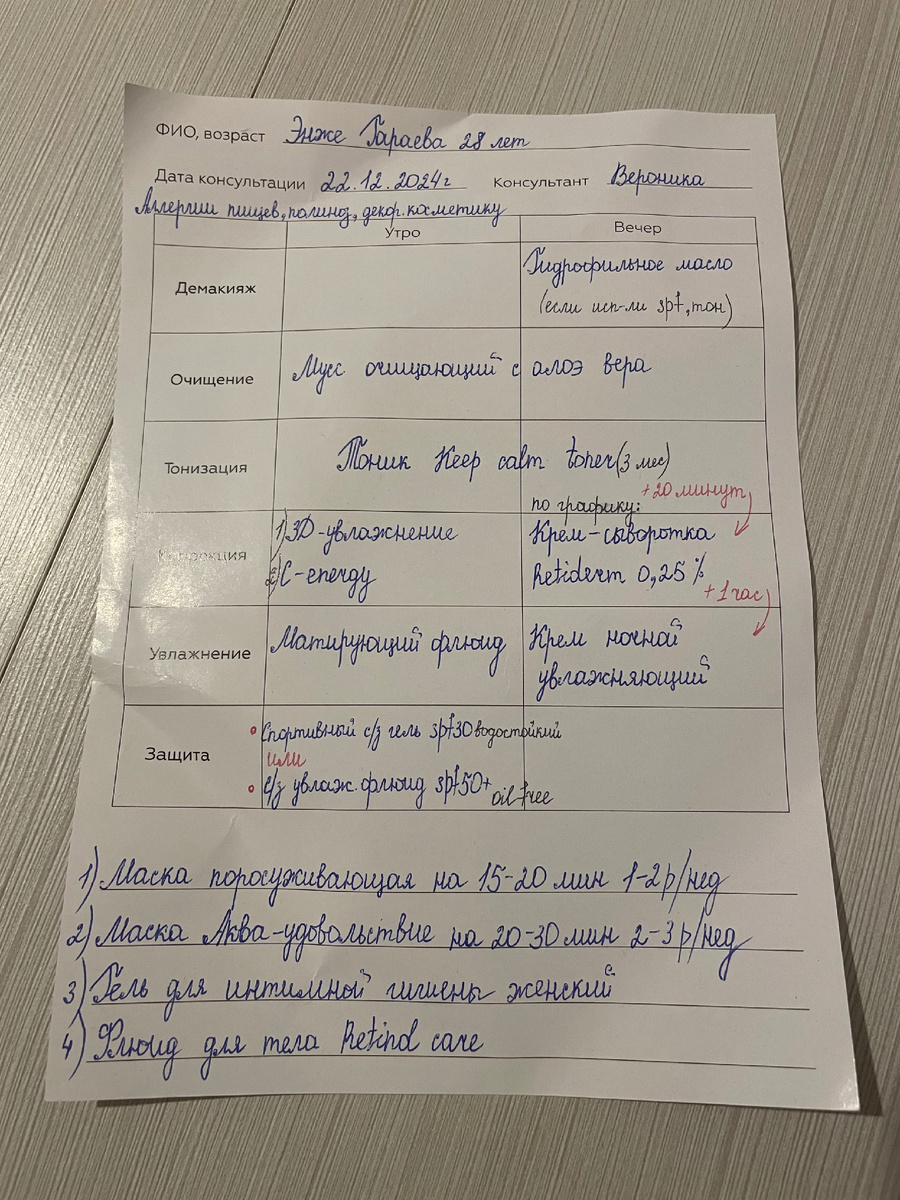 ФИО, возраст Энже Гараева 28 лет
Дата консультации 22.12.2024г Консультант Вероника
Аллергии пищев, полиноз, декор. косметику
Утро Вечер
Демакияж Гидрофильное масло
(если исп-ли spf, тон)
Очищение Мусс очищающий с алоэ вера
Тонизация Тоник Keep calm toner (3 мес)
+20 минут
по графику:
Коррекция 1) 3D-увлажнение Крем-сыворотка
2) C-energy Retiderm 0,25%
+1 час
Увлажнение Матирующий флюид Крем ночной
увлажняющий
Защита Спортивный с/з гель spf30 водостойкий
или
с/з увлаж. флюид spf50+ oil free
1) Маска поросуживающая на 15-20 мин 1-2 р/нед
2) Маска Аква-удовольствие на 20-30 мин 2-3 р/нед
3) Гель для интимной гигиены женский
4) Флюид для тела Retinol care